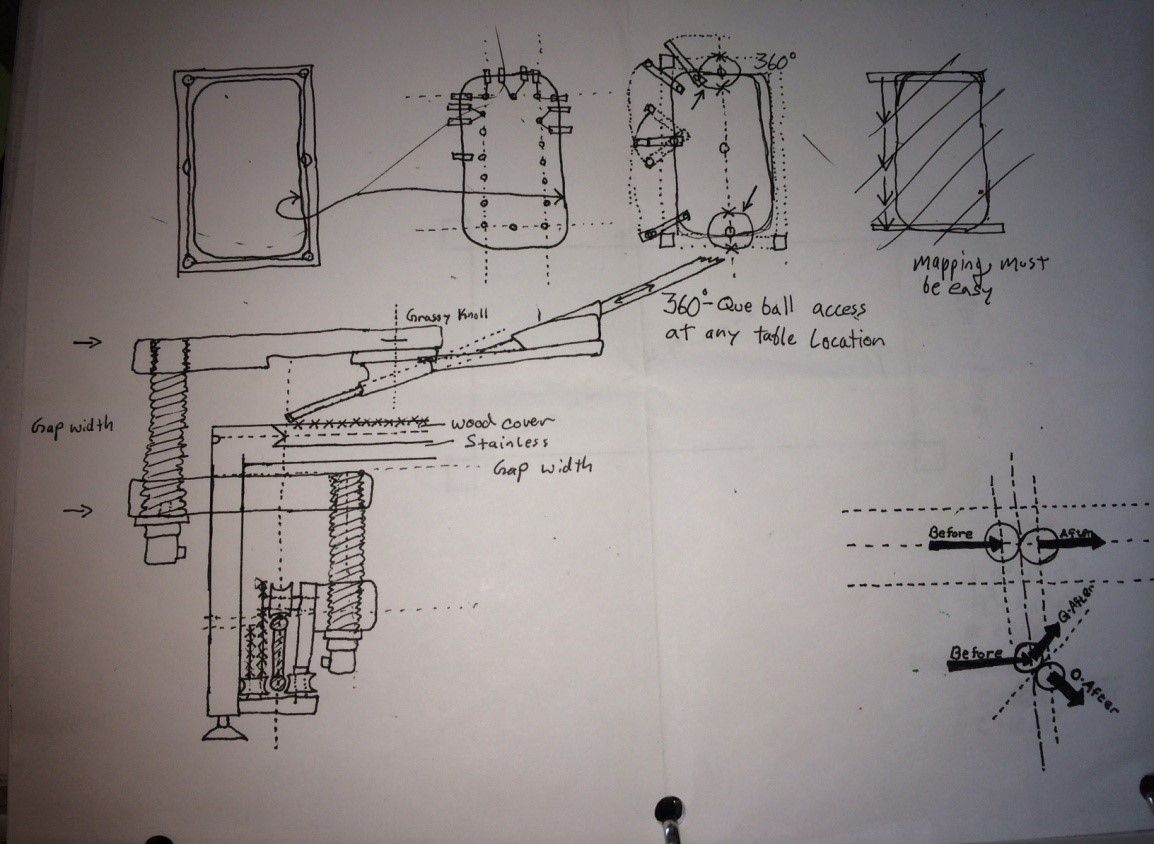 360°
Mapping, Must
be easy
360°-Que ball access
at any table Location
Grassy Knoll
Gap width
wood cover
Stainless
Gap width
Before
After
Before
Q-After
O-After